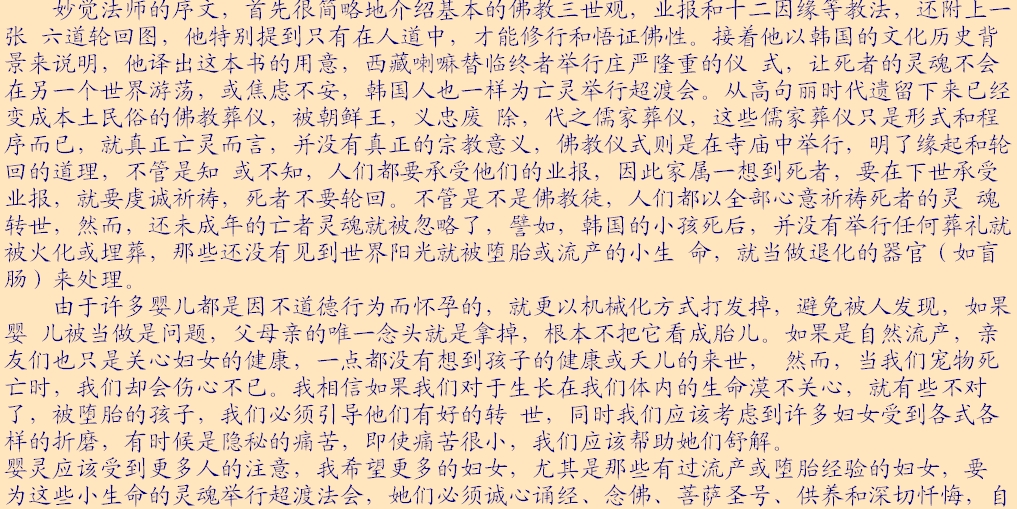 妙觉法师的序文，首先很简略地介绍基本的佛教三世观，业报和十二因缘等教法，还附上一
张 六道轮回图，他特别提到只有在人道中，才能修行和悟证佛性。接着他以韩国的文化历史背
景来说明，他译出这本书的用意，西藏喇嘛替临终者举行庄严隆重的仪 式，让死者的灵魂不会
在另一个世界游荡，或焦虑不安，韩国人也一样为亡灵举行超渡会。从高句丽时代遗留下来已经
变成本土民俗的佛教葬仪，被朝鲜王，义忠废 除，代之儒家葬仪，这些儒家葬仪只是形式和程
序而已，就真正亡灵而言，并没有真正的宗教意义，佛教仪式则是在寺庙中举行，明了缘起和轮
回的道理，不管是知 或不知，人们都要承受他们的业报，因此家属一想到死者，要在下世承受
业报，就要虔诚祈祷，死者不要轮回。不管是不是佛教徒，人们都以全部心意祈祷死者的灵 魂
转世，然而，还未成年的亡者灵魂就被忽略了，譬如，韩国的小孩死后，并没有举行任何葬礼就
被火化或埋葬，那些还没有见到世界阳光就被堕胎或流产的小生 命，就当做退化的器官（如盲
肠）来处理。
由于许多婴儿都是因不道德行为而怀孕的，就更以机械化方式打发掉，避免被人发现，如果
婴 儿被当做是问题，父母亲的唯一念头就是拿掉，根本不把它看成胎儿。如果是自然流产，亲
友们也只是关心妇女的健康，一点都没有想到孩子的健康或夭儿的来世， 然而，当我们宠物死
亡时，我们却会伤心不已。我相信如果我们对于生长在我们体内的生命漠不关心，就有些不对
了，被堕胎的孩子，我们必须引导他们有好的转 世，同时我们应该考虑到许多妇女受到各式各
样的折磨，有时候是隐秘的痛苦，即使痛苦很小，我们应该帮助她们舒解。
婴灵应该受到更多人的注意，我希望更多的妇女，尤其是那些有过流产或堕胎经验的妇女，要
为这些小生命的灵魂举行超渡法会，她们必须诚心诵经、念佛、菩萨圣号、供养和深切忏悔，自